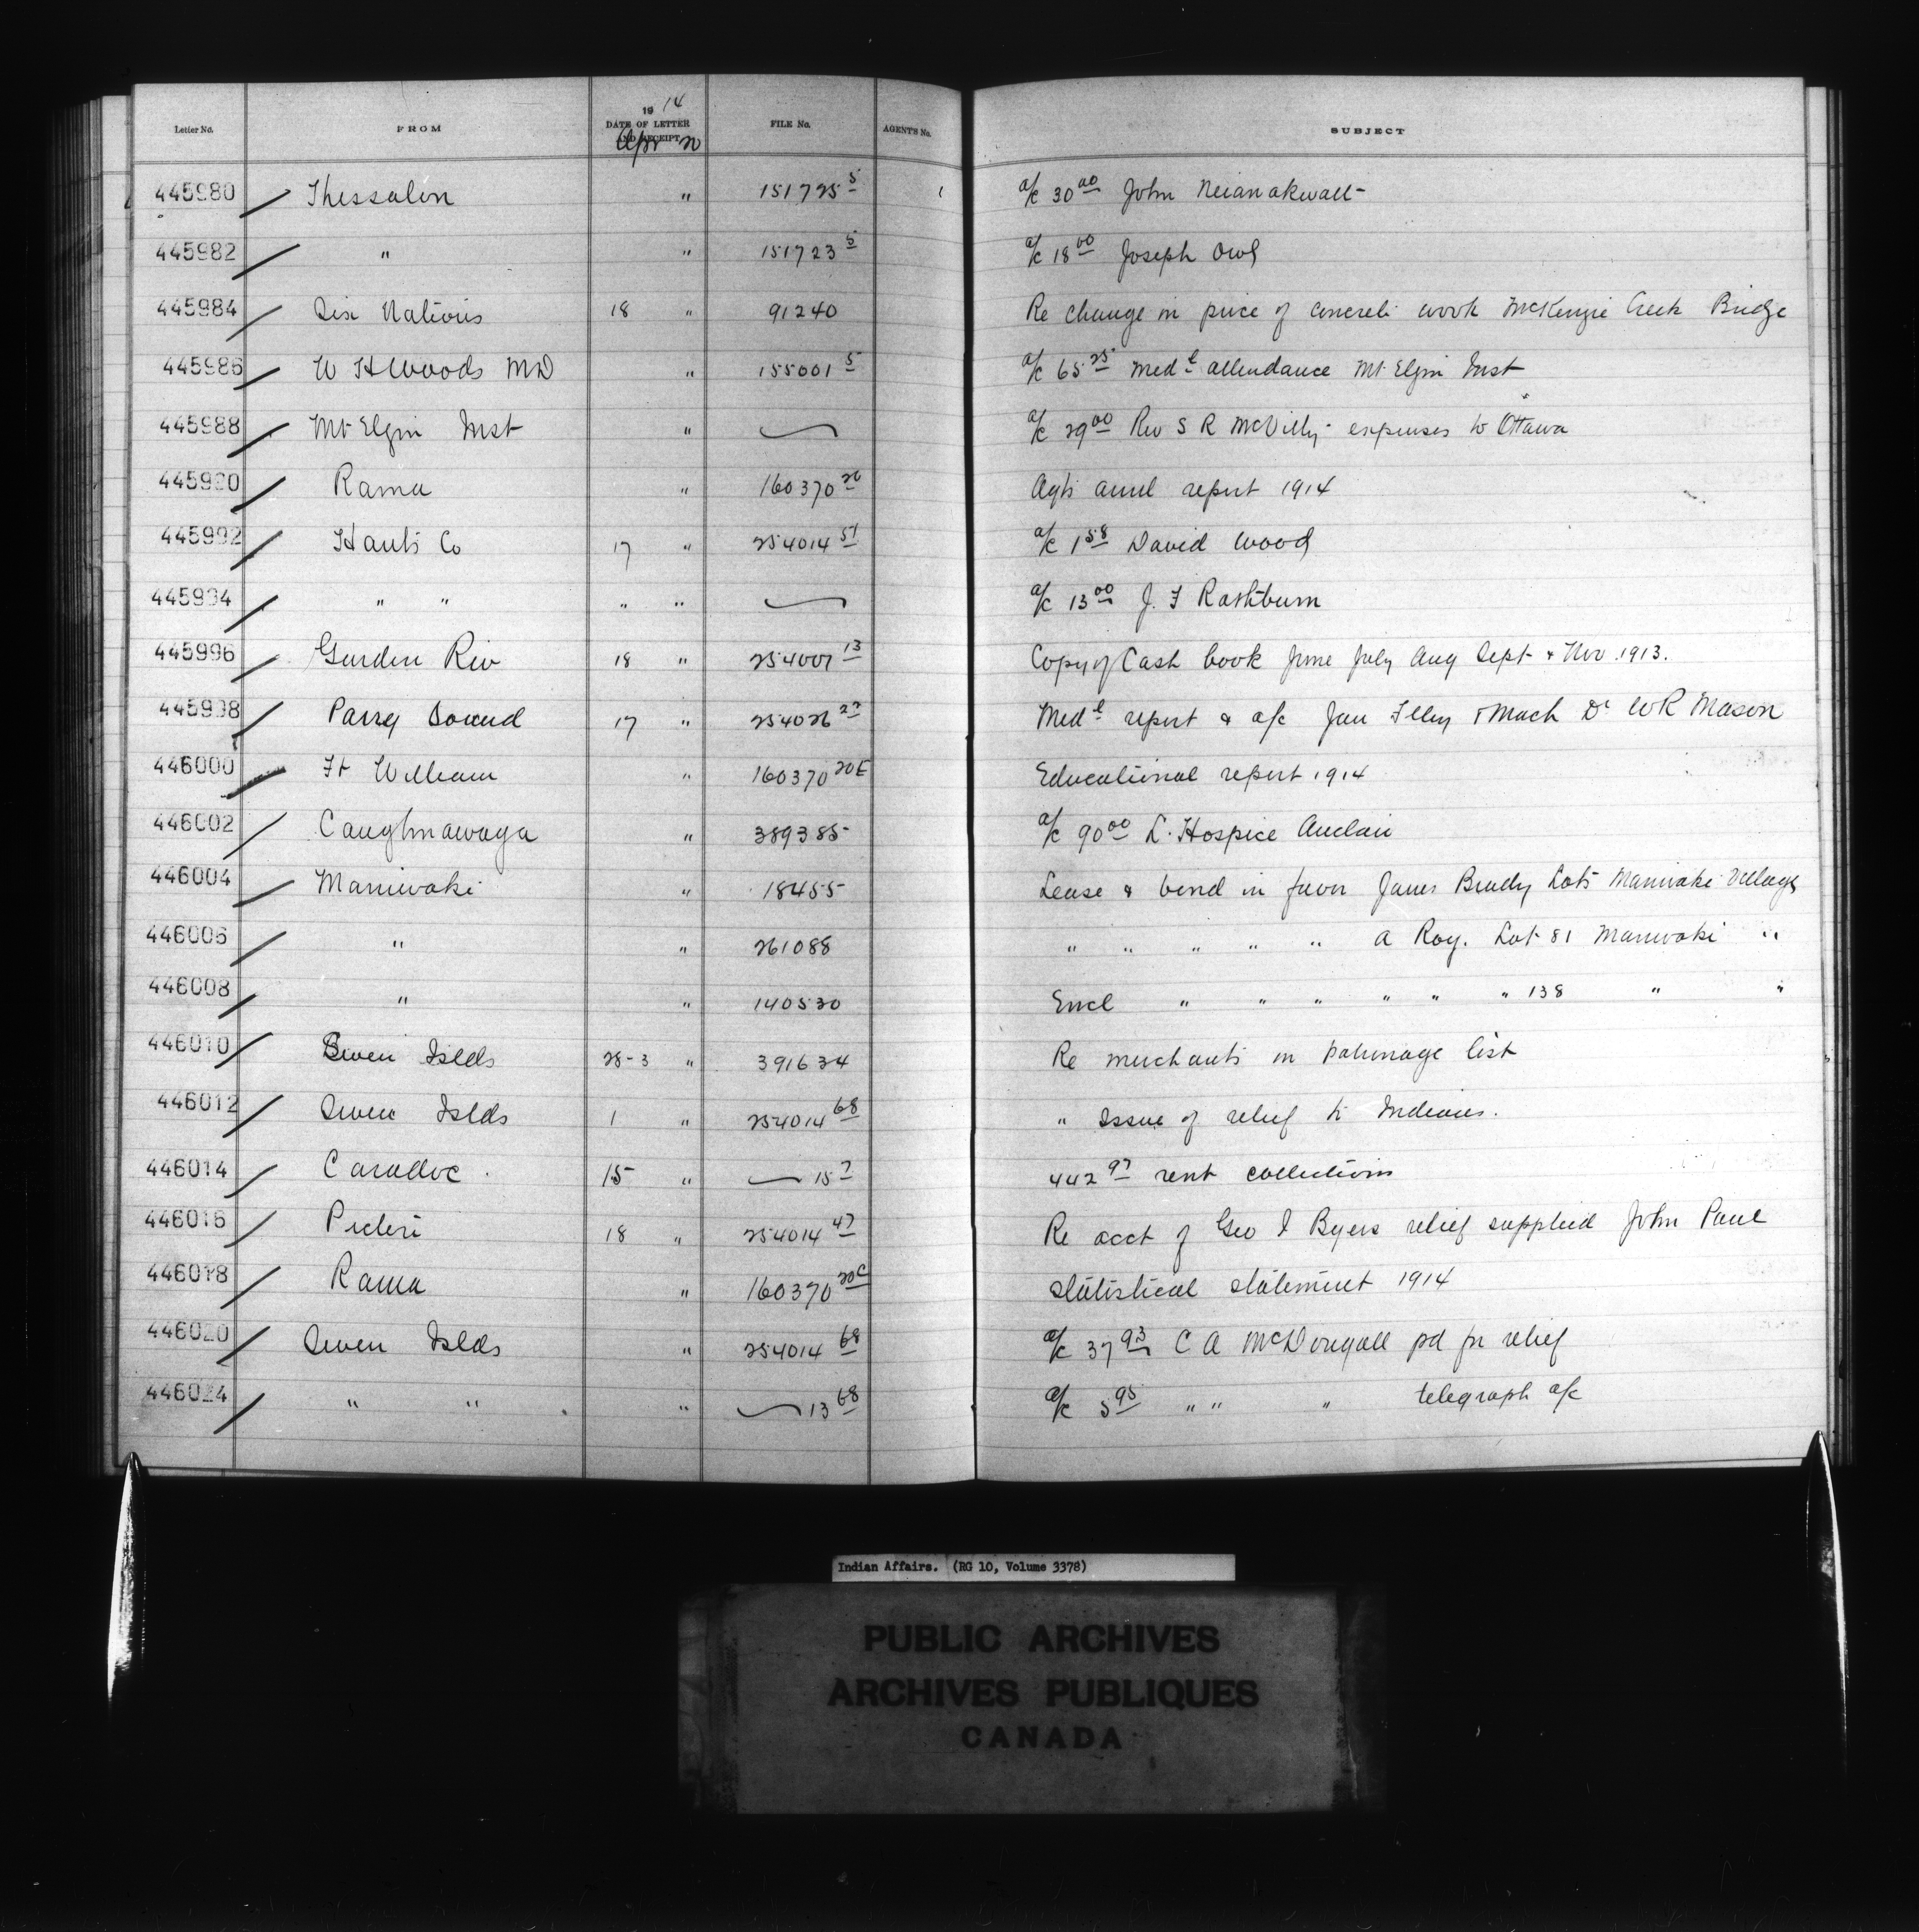 Letter No. FROM 1914 DATE OF LETTER AND RECEIPT Apr 20 FILE No. AGENTS No. SUBJECT
445980 Thessalon " 151725 5 a/c 30 00 John
445982 " " 151723 5 a/c 18 00 Joseph Owl
445984 Six Nations 18 " 91240 Re change in price of concrete work McKenzie Creek Bridge
445986 W H Woods MD " 155001 5 a/c 65 25 Medl attendance Mt Elgin Inst
445988 Mt Elgin Inst " a/c 29 00 Rev S R McVitty expenses to Ottawa
445990 Rama " 160370 20 Agts annl report 1914
445992 Hants Co 17 " 254014 51 a/c 1 58 David Wood
445994 " " " " a/c 13 00 J. F Rathburn
445996 Garden Riv 18 " 254007 13 Copy of Cash book June July Aug Sept & Nov. 1913.
445998 Parry Sound 17 " 254026 27 Medl report & a/c Jan Feby & Mach Dr W R Mason
446000 Ft William " 160370 20E Educational report 1914
446002 Caughnawaga " 389385 a/c 90 00 L. Hospice Auclair
446004 Maniwaki " 18455 Lease & bond in favor James Brady Lots Maniwaki Village
446006 " " 261088 " " " " " A Roy. Lot 81 Maniwaki "
446008 " " 140530 Encl " " " " " " 138 " "
446010 Owen Islds 28-3 " 391634 Re merchants on patronage list
446012 Owen Islds 1 " 254014 68 " Issue of relief to Indians.
446014 Caradoc 15 " 15 7 442 97 rent collections
446016 Pictou 18 " 254014 47 Re acct of Geo I Byers relief supplied John Paul
446018 Rama " 160370 20C Statistical statement 1914
446020 Owen Islds " 254014 68 a/c 37 93 C A McDougall pd for relief
446024 " " " 13 68 a/c 5 95 " " " telegraph a/c
Indian Affairs. (RG 10, Volume 3378)
PUBLIC ARCHIVES
ARCHIVES PUBLIQUES
CANADA